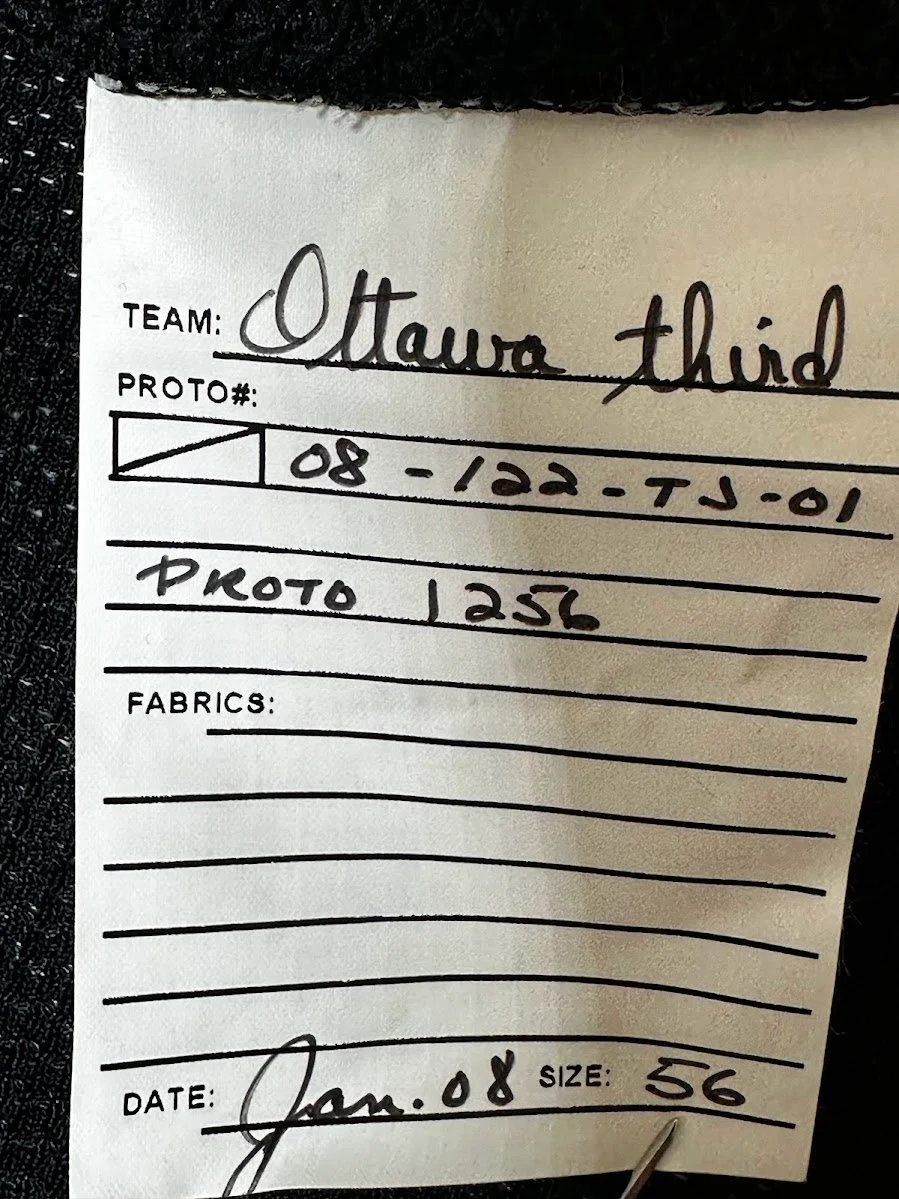 TEAM: Ottawa third
PROTO#:
08-122-TJ-01
PROTO 1256
FABRICS:
DATE: Jan. 08 SIZE: 56